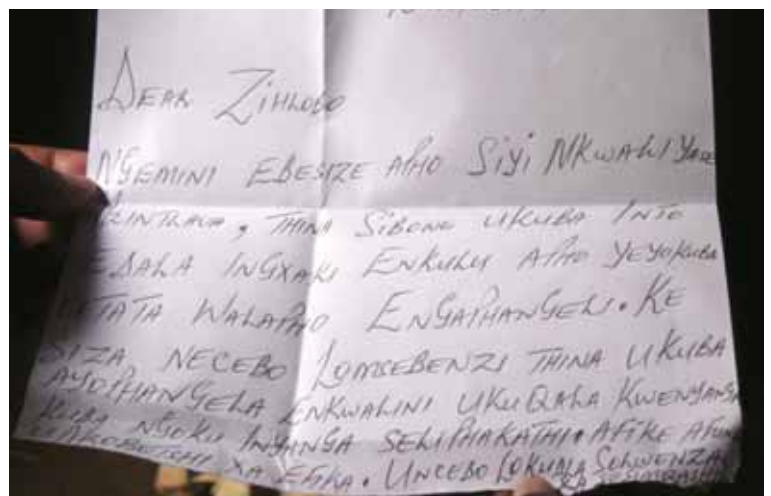 Dear Zihlobo
Ngemini ebesize apho siyi Nkwali
, thina sibone ukuba into
edala ingxaki enkulu apho yeyokuba
utata walapho engaphangeli. Ke
siza necebo lomsebenzi thina ukuba
ayophangela enkwalini ukuqala kwenyanga
kuba ngoku inyanga seliphakathi. Afike
xa efika. Uncebo lokuqala